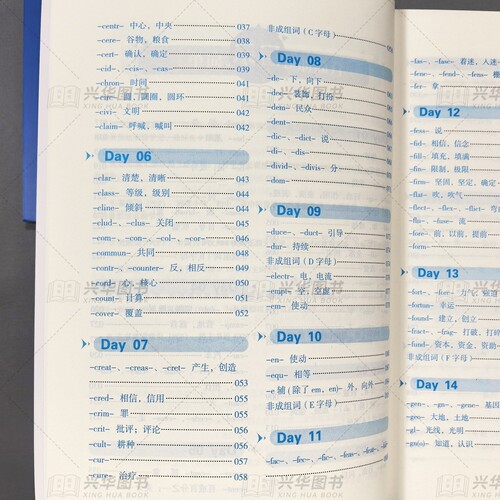 -centr- 中心，中央 037
-cere- 谷物，粮食 038
-cert- 确认，确定 039
-cid-、-cis-、-cas- 039
-chron- 时间 041
-circ- 圆，圆圈，圆环 041
-civi- 文明 042
-claim- 呼喊，喊叫 042
Day 06
-clar- 清楚，清晰 043
-class- 等级，级别 044
-cline- 倾斜 044
-clud-、-clus- 关闭 045
-com-、-con-、-col-、-cor- 046
-commun- 共同 048
-contr-、-counter- 反，相反 049
-cord- 心，核心 050
-count- 计算 051
-cover- 覆盖 052
Day 07
-creat-、-creas-、-cret- 产生，创造
053
-cred- 相信，信用 055
-crim- 罪 055
-crit- 批评；评论 056
-cult- 耕种 056
-cur- 057
-cure- 治疗 058
非成组词（C字母）
058
Day 08
-de- 下，向下
-deco- 装饰，打扮
-dem- 民众
-dent-
-dic-、-dict- 说
-di-、-dis-
-divid-、-divis- 分
-dom-
Day 09
-duce-、-duct- 引导
-dur- 持续
非成组词（D字母）
-electr- 电，电流
-empt- 空，空虚
-em- 使动
Day 10
-en- 使动
-equ- 相等
-e辅（除了em, en）- 外，向外
非成组词（E字母）
Day 11
-fac-、-fec-、-fic-
-fas-、-fasc- 看迷，人迷
-fene-、-fend-、-fens-
-fer- 拿
Day 12
-fess- 说
-fid- 相信，信念
-fill- 填充，填满
-fin- 限制，极限
-firm- 坚固，坚定，确定
-flat- 吹，吹气
-flect-、-flex- 弯
-flu-、-fuse- 流
-fore- 前，以前，提前
-form-
Day 13
-fort-、-forc- 力气，强
-fortun- 幸运
-found- 建立，创立
-fract-、-frag- 打破，打碎
-fund- 资本，资金，资助
非成组词（F字母）
Day 14
-gen-、-gn-、-gene- 基因
-geo- 大地，土地
-gl- 光线，光明
-gn(o)- 知道，认识
兴华图书
XING HUA BOOK